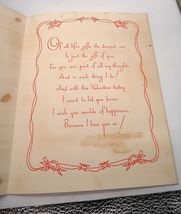 Of all life's gifts the dearest one
Is just the gift of you
For you are part of all my thoughts
And in each thing I do!
And with this Valentine today
I want to let you know
I wish you worlds of happiness,
Because I love you so!